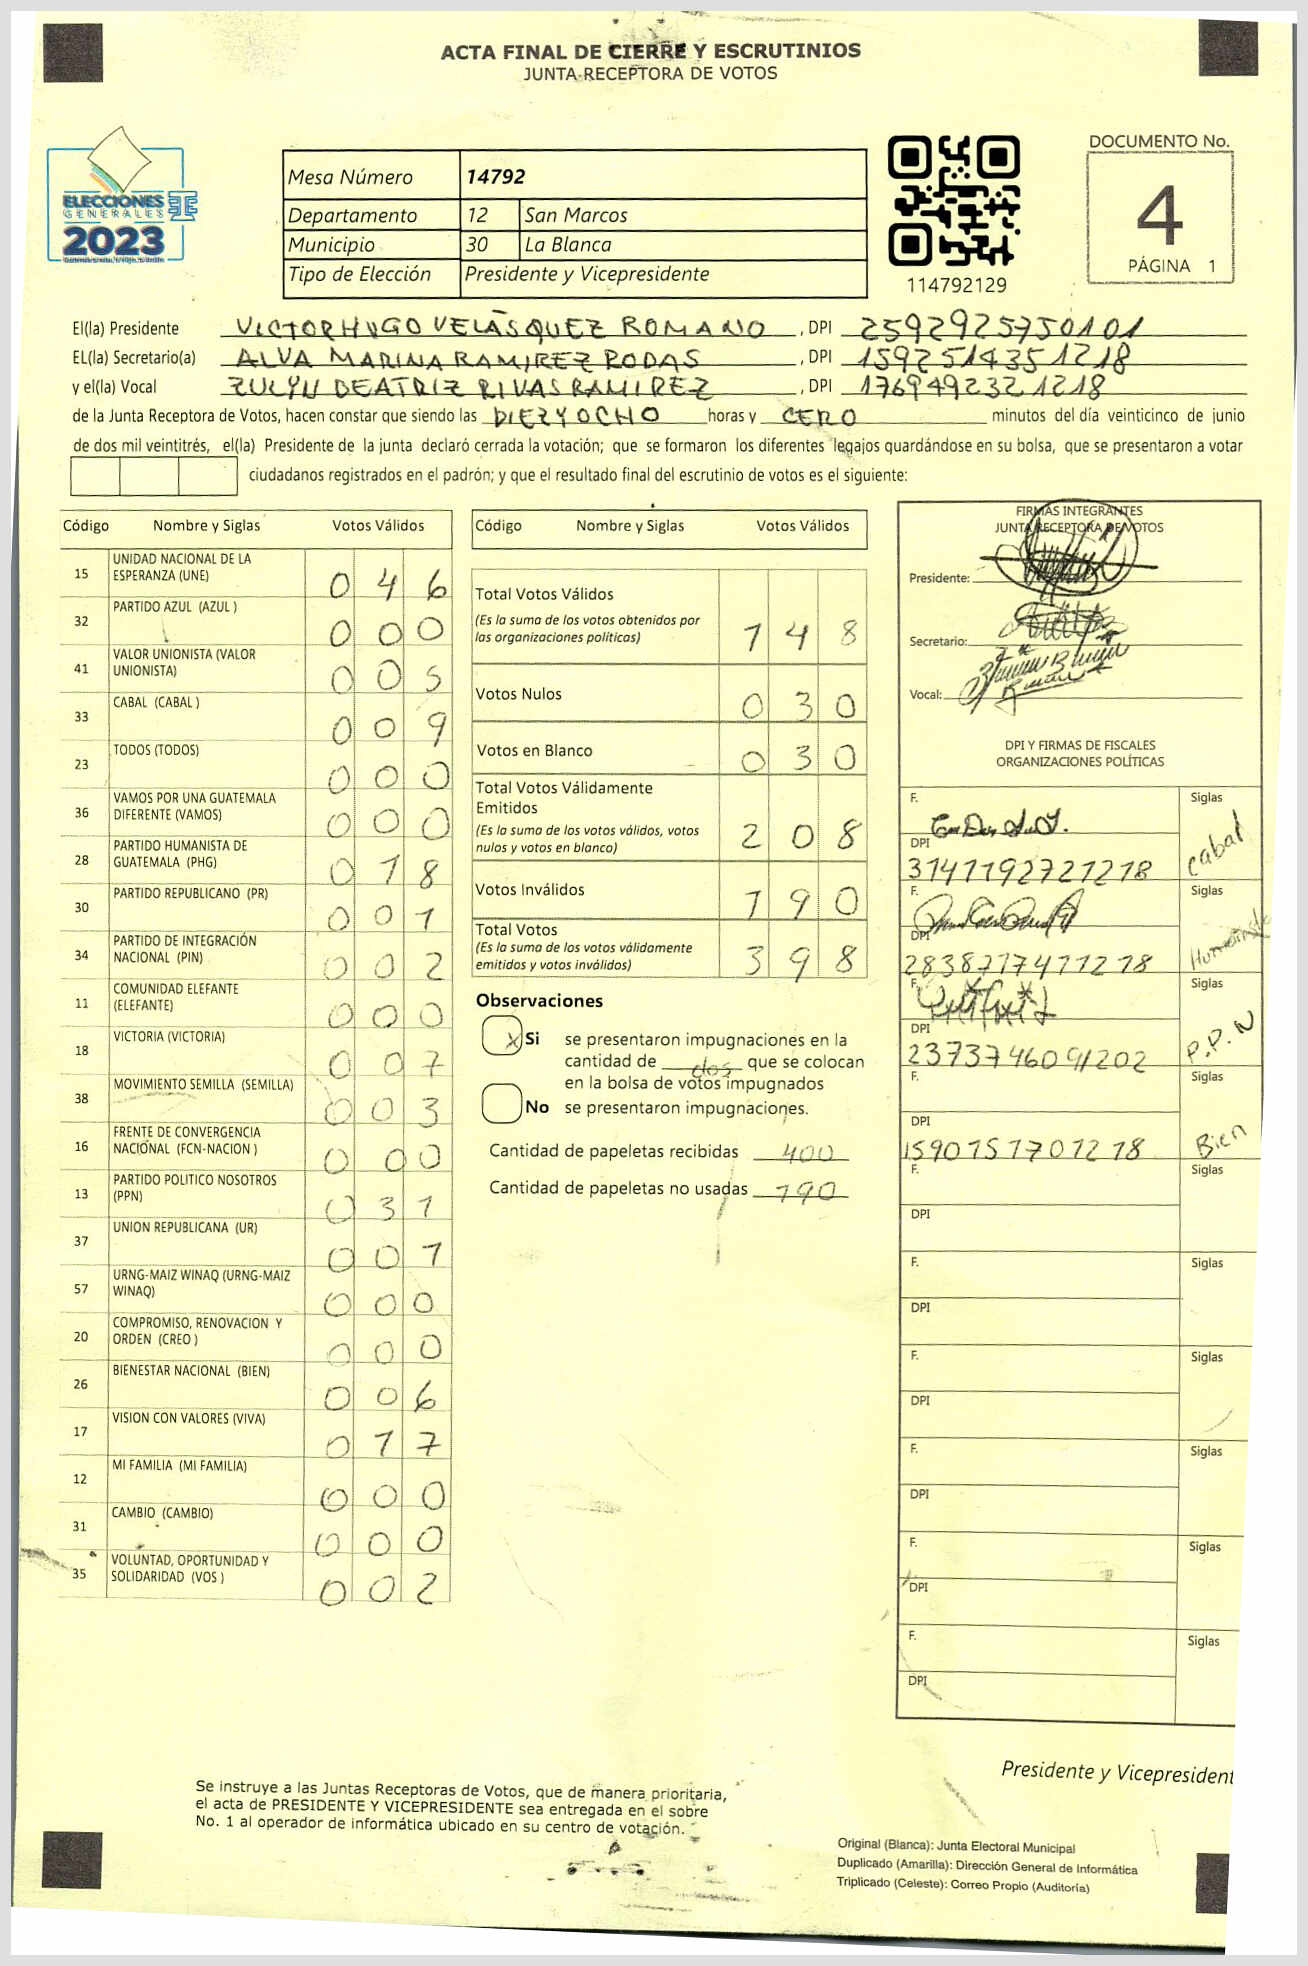 ACTA FINAL DE CIERRE Y ESCRUTINIOS
JUNTA RECEPTORA DE VOTOS
ELECCIONES
GENERALES
2023
Mesa Número 14792
Departamento 12 San Marcos
Municipio 30 La Blanca
Tipo de Elección Presidente y Vicepresidente
114792129
DOCUMENTO No.
4
PÁGINA 1
El(la) Presidente VICTOR HUGO VELÁSQUEZ ROMANO, DPI 2592925750101
EL(la) Secretario(a) ALVA MARINA RAMIREZ RODAS, DPI 1592514351218
y el(la) Vocal ZULYN BEATRIZ RIVAS RAMIREZ, DPI 1769492321218
de la Junta Receptora de Votos, hacen constar que siendo las DIEZ Y OCHO horas y CERO minutos del día veinticinco de junio
de dos mil veintitrés, el(la) Presidente de la junta declaró cerrada la votación; que se formaron los diferentes legajos quardándose en su bolsa, que se presentaron a votar
ciudadanos registrados en el padrón; y que el resultado final del escrutinio de votos es el siguiente:
Código Nombre y Siglas Votos Válidos
15 UNIDAD NACIONAL DE LA
ESPERANZA (UNE) 046
32 PARTIDO AZUL (AZUL ) 000
41 VALOR UNIONISTA (VALOR
UNIONISTA) 005
33 CABAL (CABAL ) 009
23 TODOS (TODOS) 000
36 VAMOS POR UNA GUATEMALA
DIFERENTE (VAMOS) 000
28 PARTIDO HUMANISTA DE
GUATEMALA (PHG) 018
30 PARTIDO REPUBLICANO (PR) 001
34 PARTIDO DE INTEGRACIÓN
NACIONAL (PIN) 002
11 COMUNIDAD ELEFANTE
(ELEFANTE) 000
18 VICTORIA (VICTORIA) 007
38 MOVIMIENTO SEMILLA (SEMILLA) 003
16 FRENTE DE CONVERGENCIA
NACIONAL (FCN-NACION ) 000
13 PARTIDO POLITICO NOSOTROS
(PPN) 031
37 UNION REPUBLICANA (UR) 001
57 URNG-MAIZ WINAQ (URNG-MAIZ
WINAQ) 000
20 COMPROMISO, RENOVACION Y
ORDEN (CREO ) 000
26 BIENESTAR NACIONAL (BIEN) 006
17 VISION CON VALORES (VIVA) 017
12 MI FAMILIA (MI FAMILIA) 000
31 CAMBIO (CAMBIO) 000
35 VOLUNTAD, OPORTUNIDAD Y
SOLIDARIDAD (VOS ) 002
Código Nombre y Siglas Votos Válidos
Total Votos Válidos
(Es la suma de los votos obtenidos por
las organizaciones políticas) 148
Votos Nulos 030
Votos en Blanco 030
Total Votos Válidamente
Emitidos
(Es la suma de los votos válidos, votos
nulos y votos en blanco) 208
Votos Inválidos 190
Total Votos
(Es la suma de los votos válidamente
emitidos y votos inválidos) 398
Observaciones
x Si se presentaron impugnaciones en la
cantidad de dos que se colocan
en la bolsa de votos impugnados
No se presentaron impugnaciones.
Cantidad de papeletas recibidas 400
Cantidad de papeletas no usadas 190
FIRMAS INTEGRANTES
JUNTA RECEPTORA DE VOTOS
Presidente:
Secretario:
Vocal:
DPI Y FIRMAS DE FISCALES
ORGANIZACIONES POLÍTICAS
F. Siglas
cabal
DPI
3141192721218
F. Siglas
Humanista
DPI
2838717411218
F. Siglas
P.P.N
DPI
2373746091202
F. Siglas
Bien
DPI
1590151701218
F. Siglas
DPI
F. Siglas
DPI
F. Siglas
DPI
F. Siglas
DPI
F. Siglas
DPI
F. Siglas
DPI
Presidente y Vicepresident
Se instruye a las Juntas Receptoras de Votos, que de manera prioritaria,
el acta de PRESIDENTE Y VICEPRESIDENTE sea entregada en el sobre
No. 1 al operador de informática ubicado en su centro de votación.
Original (Blanca): Junta Electoral Municipal
Duplicado (Amarilla): Dirección General de Informática
Triplicado (Celeste): Correo Propio (Auditoría)